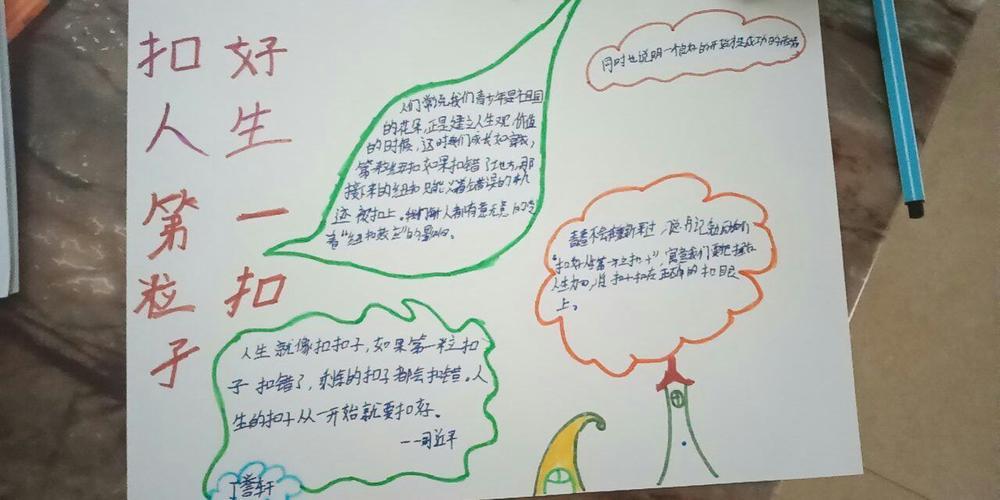 扣好
人生
第一
粒扣
子
人们常说我们青少年是祖国
的花朵,正是建立人生观 价值
的时候,这时我们成长如穿衣,
第一粒纽扣如果扣错了地方,那
接下来的纽扣只能 着错误的轨
迹 被扣上。我们每人都有意无意的受
着“纽扣效应”的影响。
同时也说明一个良好的开始是成功的
青春不会重新来过,
“扣好人生第一粒扣子”,寓意我们要把握住
人生方向,将扣子扣在正确的扣眼
上。
人生就像扣扣子,如果第一粒扣
子扣错了,剩余的扣子都会扣错。人
生的扣子从一开始就要扣好。
——习近平
丁誉轩